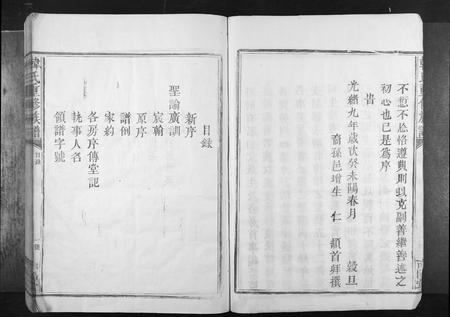 不愆不忘恪遵典則以克副善繼善述之
初心也已是為序
旹
光緒九年歲次癸未陽春月 穀旦
裔孫邑增生 仁 頓首拜撰
目錄
新序
聖諭廣訓
宸翰
原序
譜例
家約
各房序傳堂記
執事人名
領譜字號
韓氏重修族譜
目錄